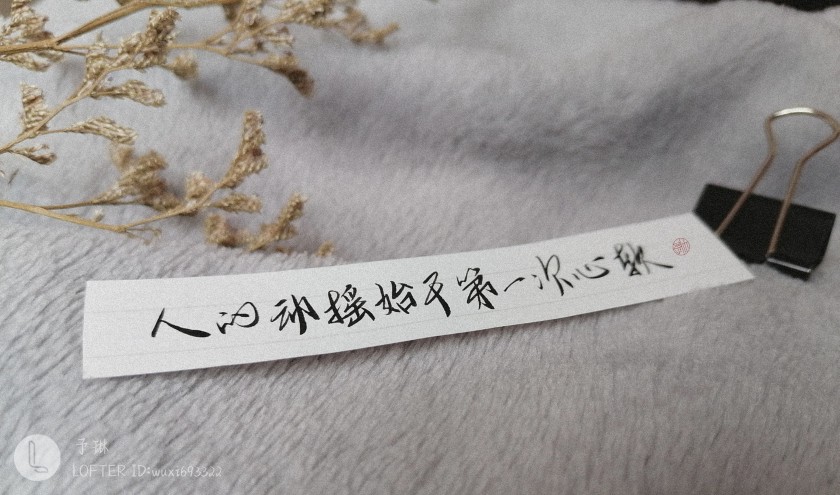 人的动摇始于第一次心软
予琳
LOFTER ID:wuxi693322